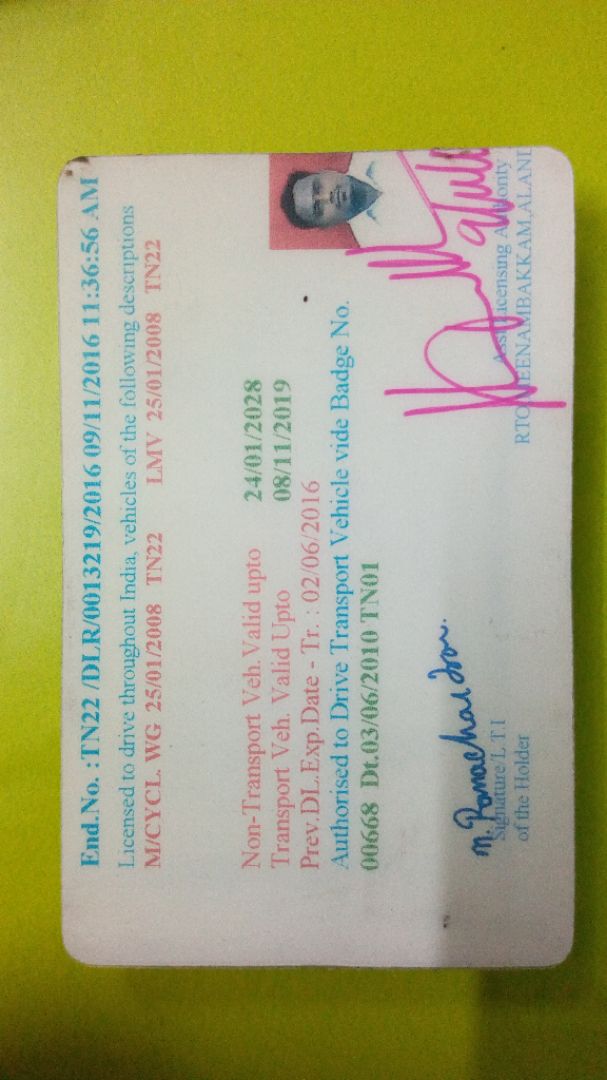 End.No. :TN22 /DLR/0013219/2016 09/11/2016 11:36:56 AM
Licensed to drive throughout India, vehicles of the following descriptions
M/CYCL. WG 25/01/2008 TN22 LMV 25/01/2008 TN22
Non-Transport Veh.Valid upto 24/01/2028
Transport Veh. Valid Upto 08/11/2019
Prev.DL.Exp.Date - Tr. : 02/06/2016
Authorised to Drive Transport Vehicle vide Badge No.
00668 Dt.03/06/2010 TN01
m. Ramachandran.
Signature/L.T.I
of the Holder
Licensing Authority
RTO,MEENAMBAKKAM,ALAND